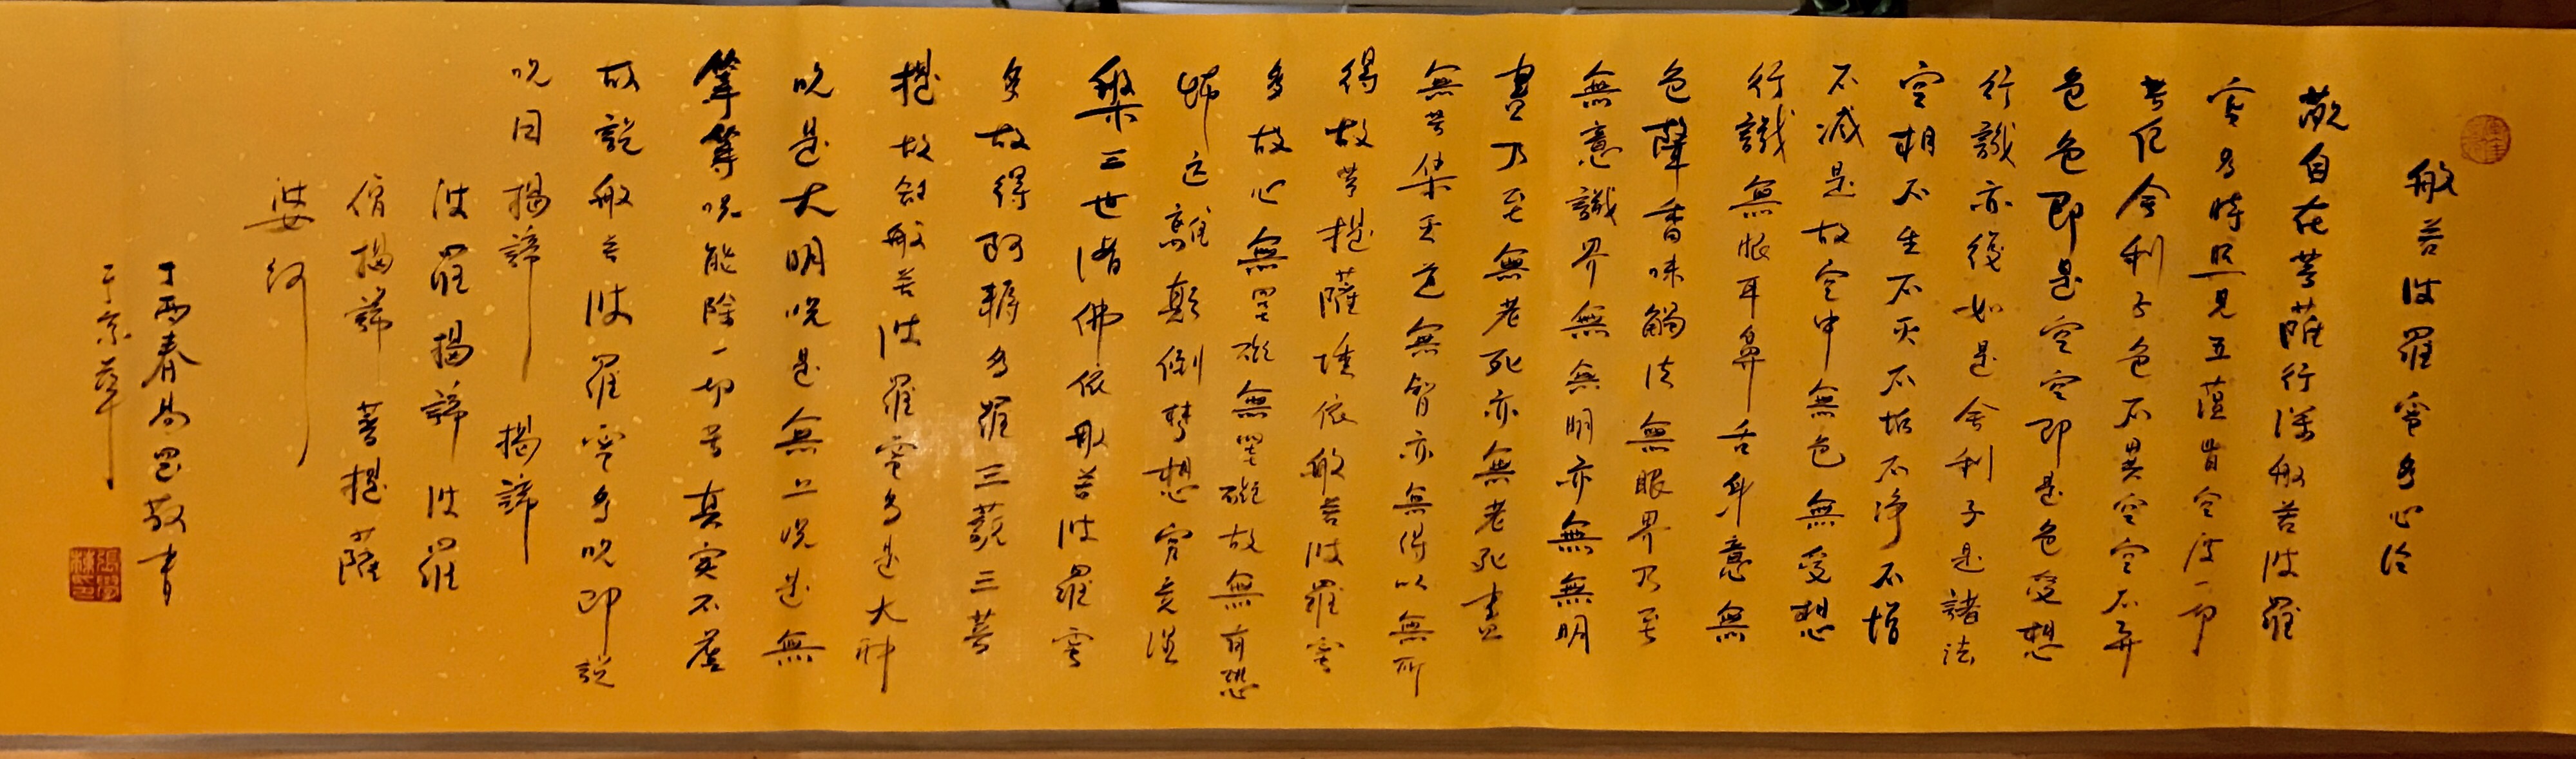 般若波羅蜜多心经
觀自在菩薩行深般若波羅
蜜多時照見五蘊皆空度一切
苦厄舍利子色不異空空不異
色色即是空空即是色受想
行識亦復如是舍利子是諸法
空相不生不灭不垢不淨不增
不減是故空中無色無受想
行識無眼耳鼻舌身意無
色聲香味觸法無眼界乃至
無意識界無無明亦無無明
盡乃至無老死亦無老死盡
無苦集灭道無智亦無得以無所
得故菩提薩埵依般若波羅蜜
多故心無罣礙無罣礙故無有恐
怖远離顛倒夢想究竟涅
槃三世诸佛依般若波羅蜜
多故得阿耨多羅三藐三菩
提故知般若波羅蜜多是大神
咒是大明咒是無上咒是無
等等咒能除一切苦真实不虛
故說般若波羅蜜多咒即說
咒曰揭諦 揭諦
波羅揭諦波羅
僧揭諦菩提薩
婆訶
丁酉春 敬書
于京華